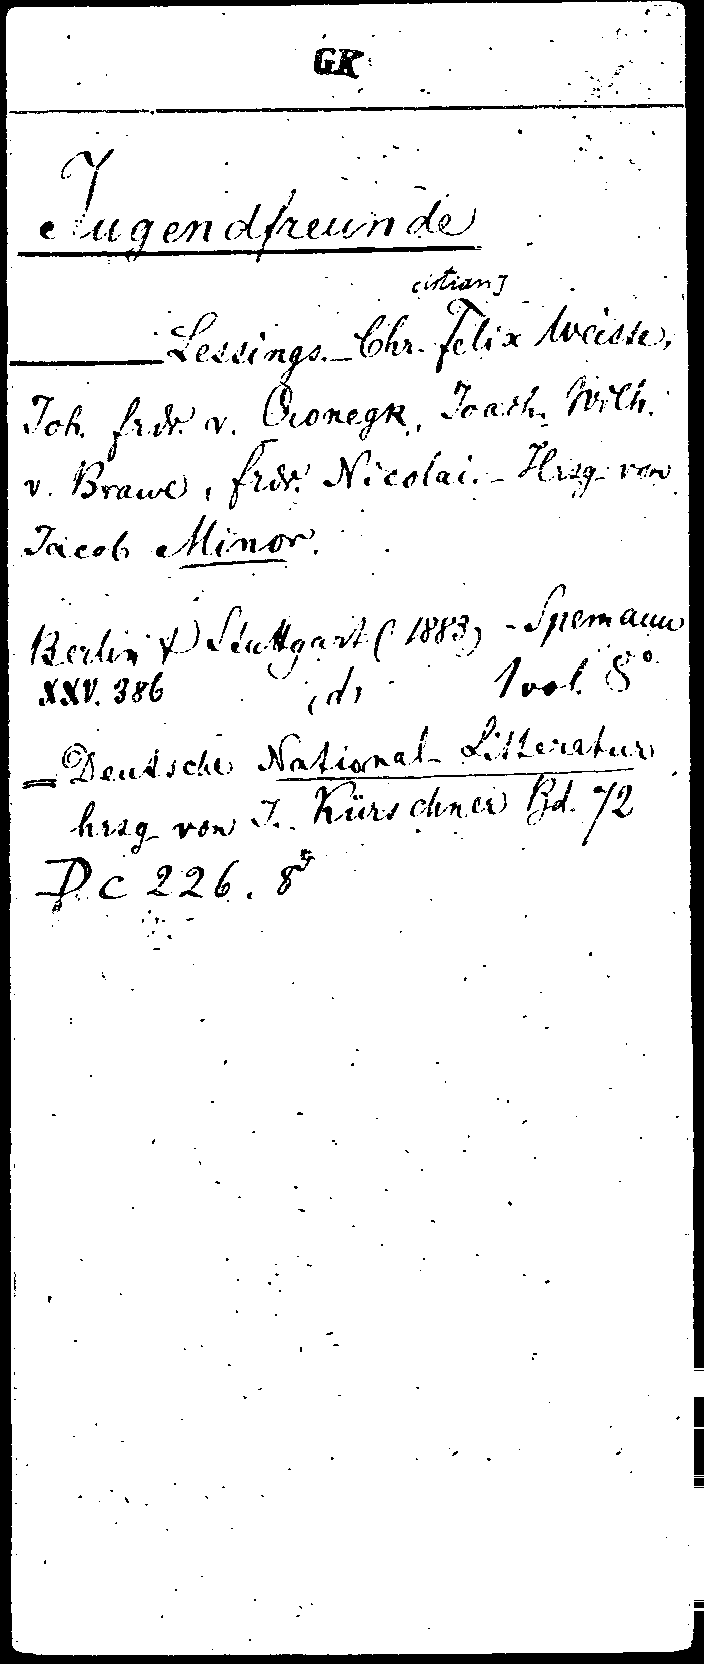 GK
Jugendfreunde
istian]
Lessings. – Chr. Felix Weisse,
Joh. Frdr. v. Cronegk, Joach. Wilh.
v. Brawe, Frdr. Nicolai. – Hrsg. von
Jacob Minor.
Berlin & Stuttgart (1883) – Spemann
XXV. 386 (d) 1 vol. 8°
= Deutsche National-Litteratur
hrsg von J. Kürschner Bd. 72
Dc 226. 8